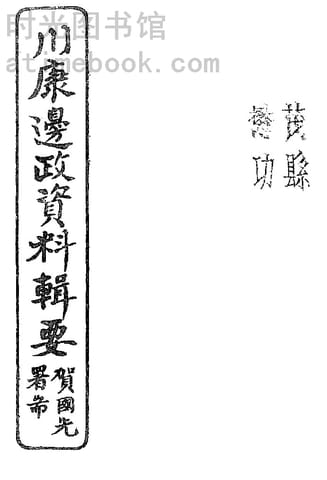 时光图书馆
atimebook.com
茂縣
懋功
川康邊政資料輯要
賀國光
署耑